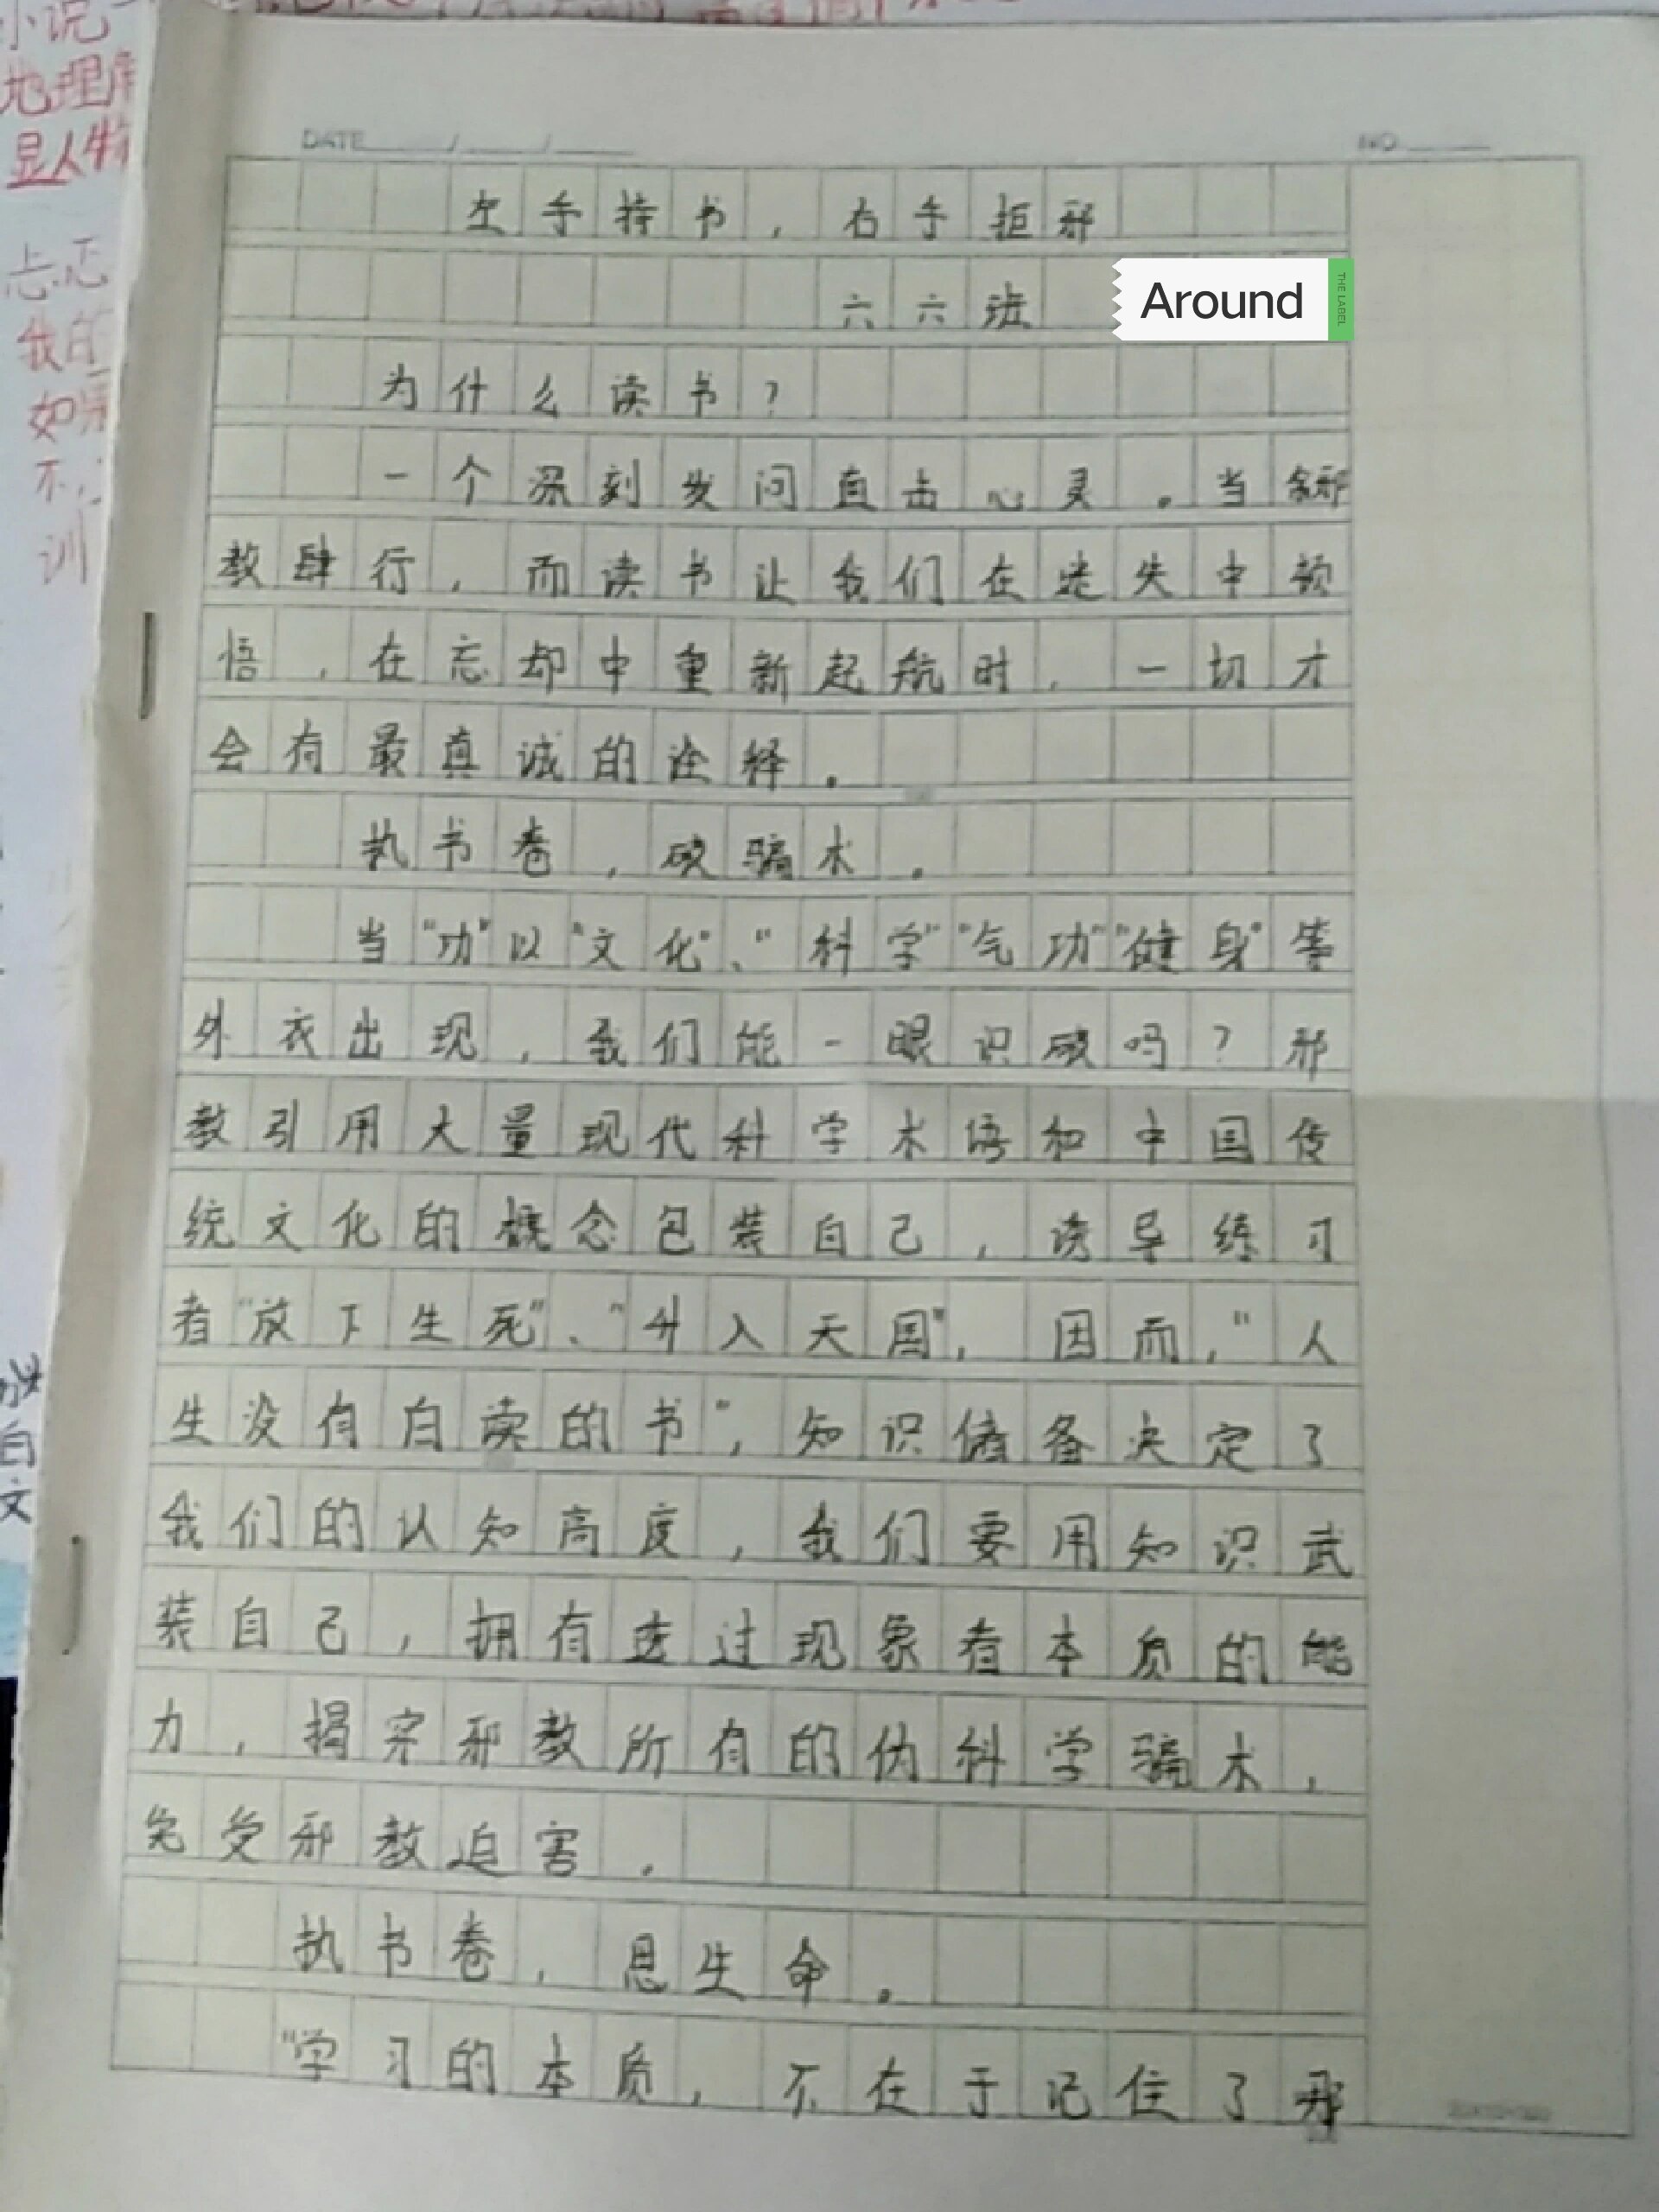 小说
地理
显人物
忐忑
我的
如果
不
训
自
文
DATE / /
NO
左手持书，右手拒邪
六六班
Around
THE LABEL
为什么读书？
一个深刻发问直击心灵。当邪
教肆行，而读书让我们在迷失中顿
悟，在忘却中重新起航时，一切才
会有最真诚的诠释。
执书卷，破骗术。
当“功”以“文化”、“科学”“气功”“健身”等
外衣出现，我们能一眼识破吗？邪
教引用大量现代科学术语和中国传
统文化的概念包装自己，诱导练习
者“放下生死”、“升入天国”，因而，“人
生没有白读的书”，知识储备决定了
我们的认知高度，我们要用知识武
装自己，拥有透过现象看本质的能
力，揭穿邪教所有的伪科学骗术，
免受邪教迫害。
执书卷，思生命。
“学习的本质，不在于记住了哪